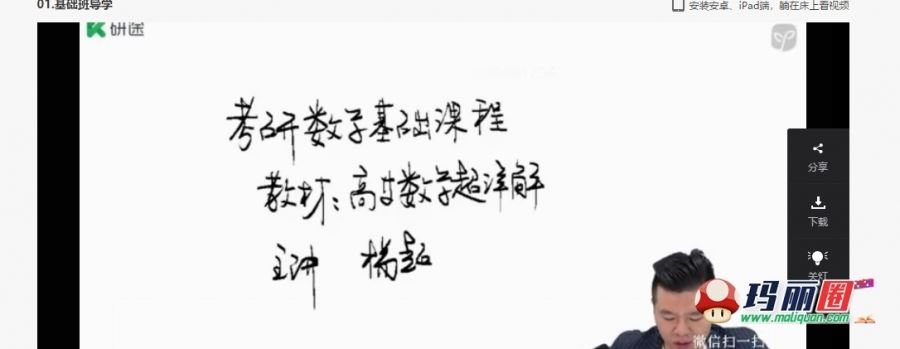 01.基础班导学
安装安卓、iPad端，躺在床上看视频
研途
考研数学基础课程
教材：高等数学超详解
主讲 杨超
分享
下载
关灯
玛丽圈
www.maliquan.com
微信扫一扫